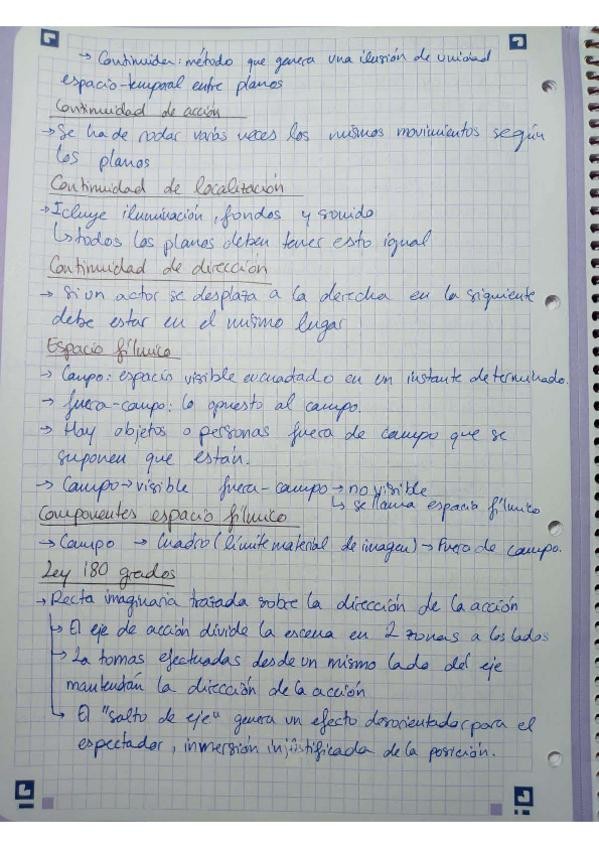 → Continuidar: método que genera una ilusión de unidad
espacio-temporal entre planos
Continuidad de acción
→ Se ha de rodar varias veces los mismos movimientos según
los planos
Continuidad de localización
→ Icluye iluminación, fondos y sonido
↳ todos los planos deben tener esto igual
Continuidad de dirección
→ Si un actor se desplaza a la derecha en la siguiente
debe estar en el mismo lugar
Espacio fílmico
→ Campo: espacio visible encuadrado en un instante determinado.
→ fuera-campo: lo opuesto al campo.
→ Hay objetos o personas fuera de campo que se
suponen que están.
→ Campo → visible fuera-campo → no visible
↳ se llama espacio fílmico
Componentes espacio fílmico
→ Campo → Cuadro (límite material de imagen) → Fuera de campo.
Ley 180 grados
→ Recta imaginaria trazada sobre la dirección de la acción
→ El eje de acción divide la escena en 2 zonas a los lados
→ La tomas efectuadas desde un mismo lado del eje
mantendrán la dirección de la acción
→ El "salto de eje" genera un efecto desorientador para el
espectador, inmersión injustificada de la posición.